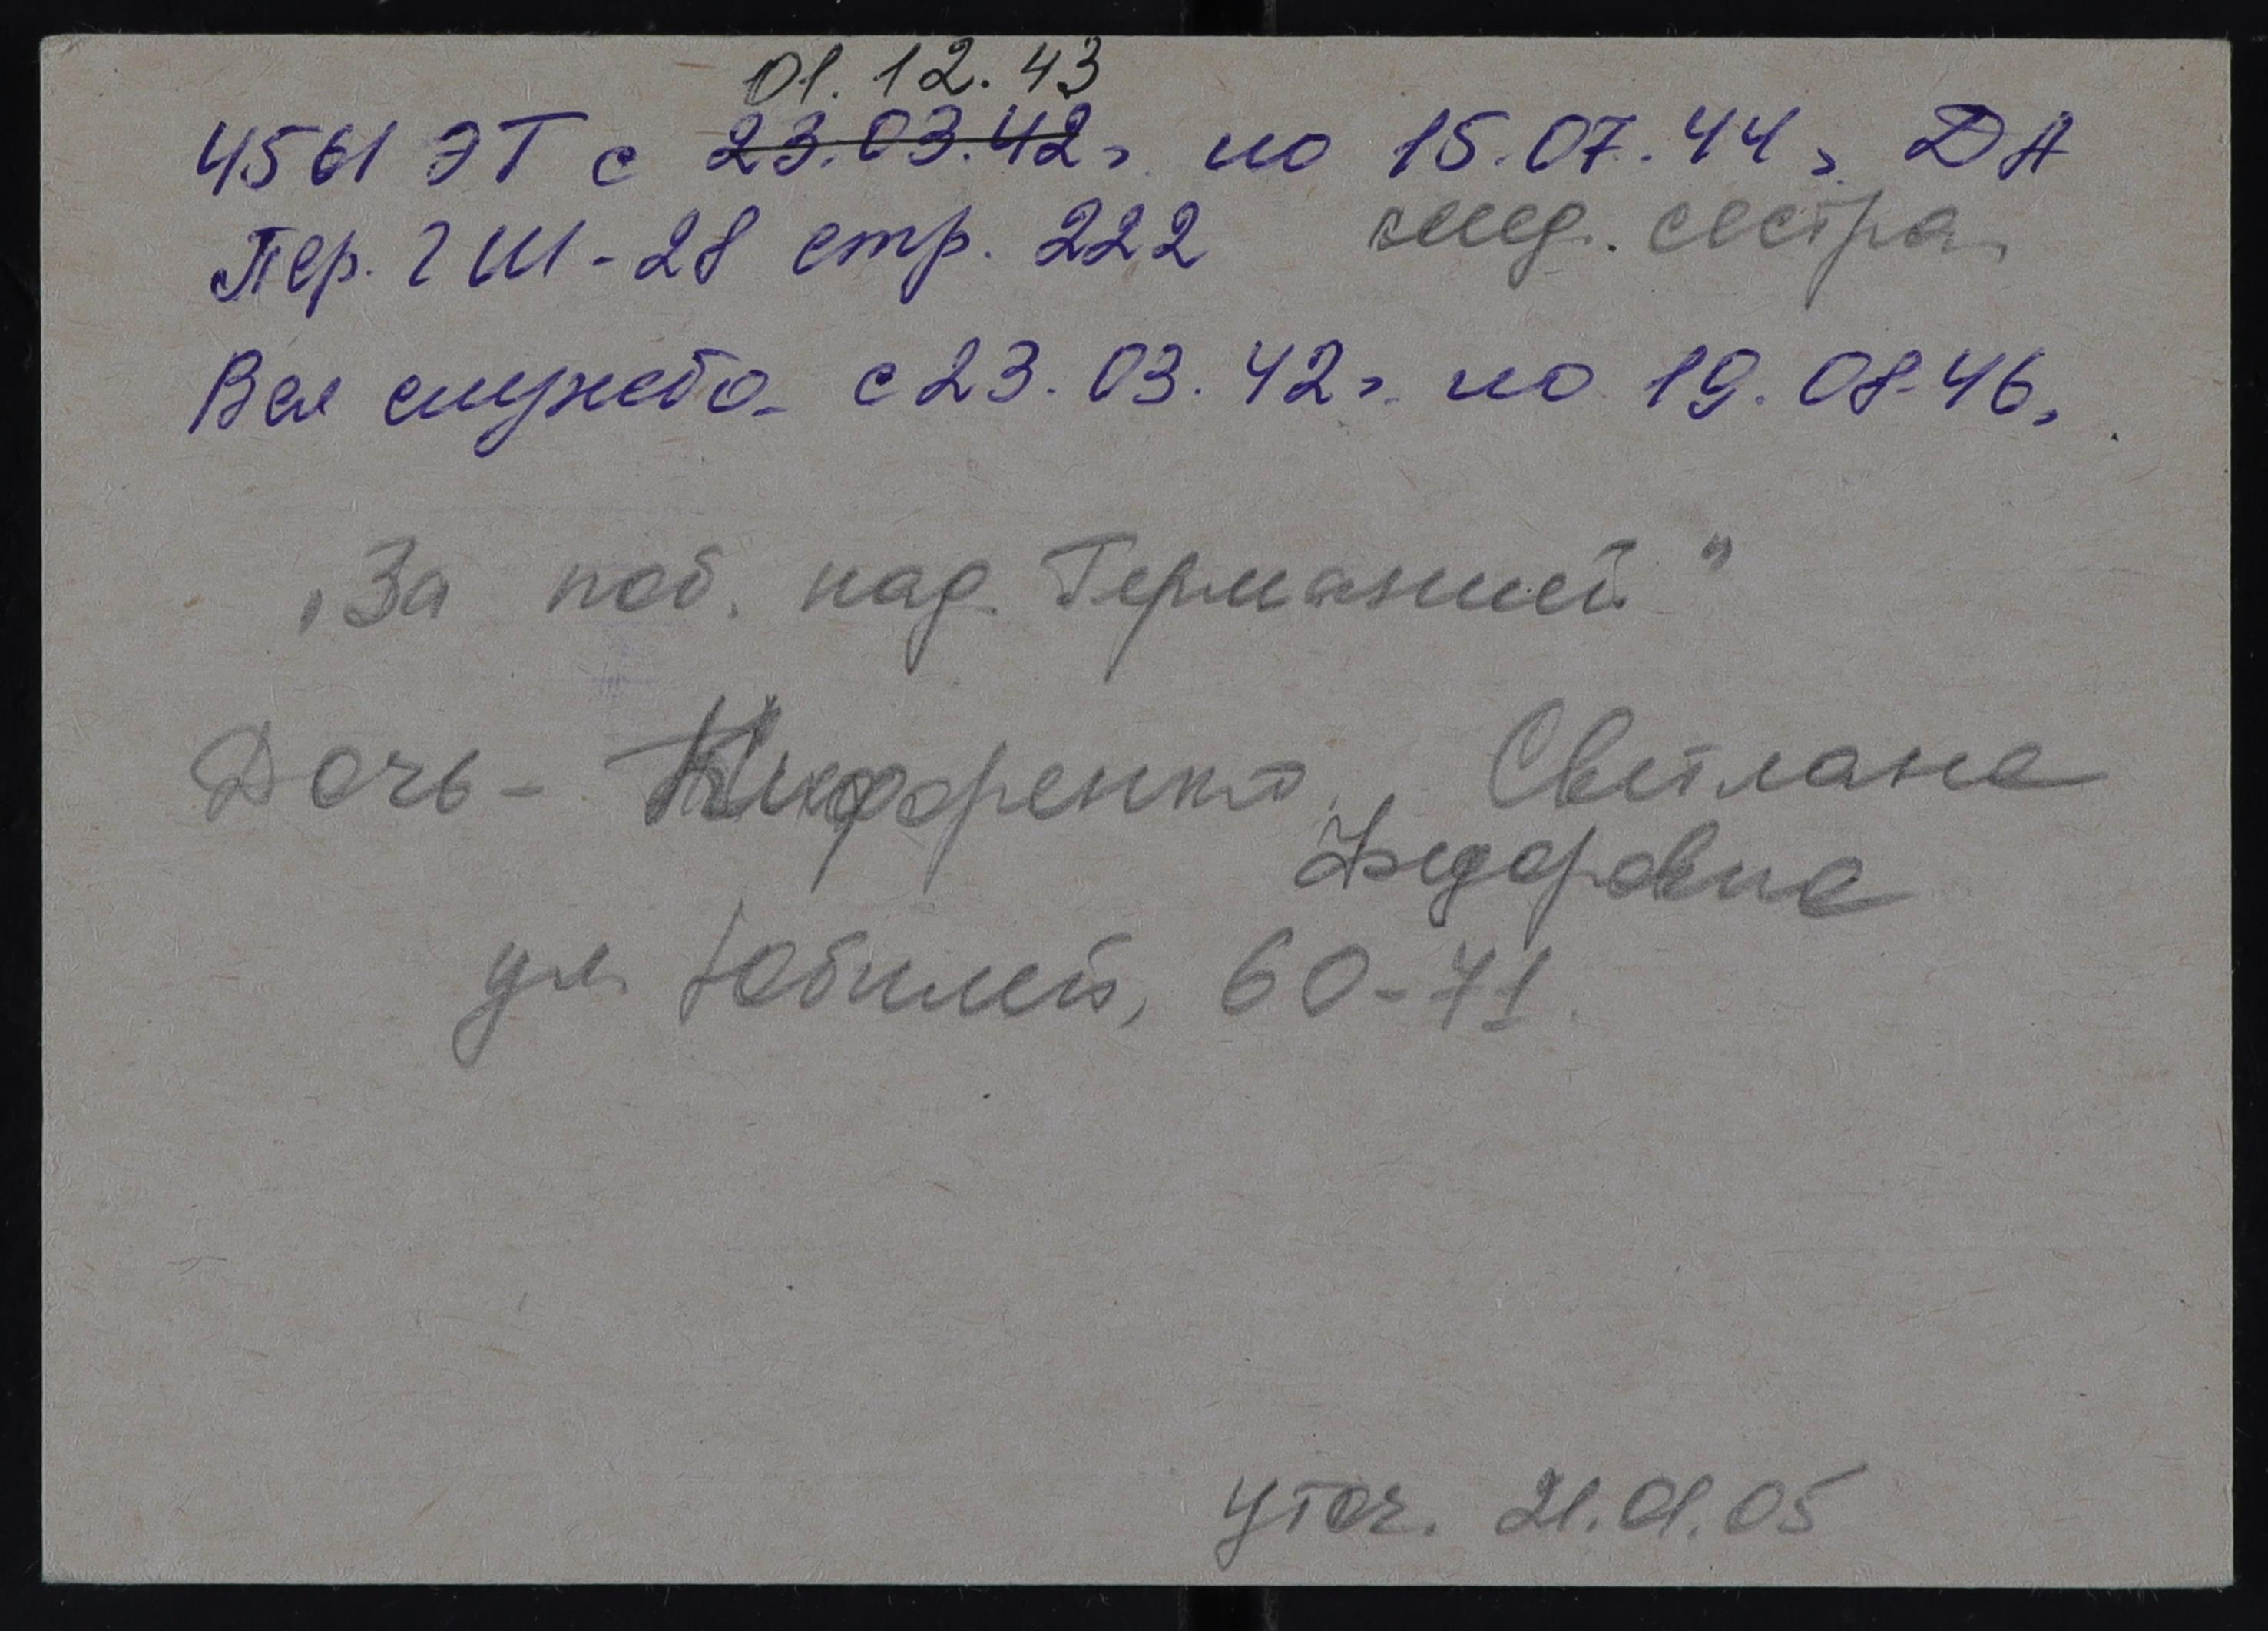 01.12.43
4561 ЭТ с 23.03.42г. по 15.07.44г. ДА
Пер. ГШ-28 стр. 222 мед. сестра
Вся служба с 23.03.42г. по 19.08.46г.
„За поб. над Германией"
Дочь - Светлана
Федоровна
ул. Юбилей, 60-71.
уточ. 21.01.05